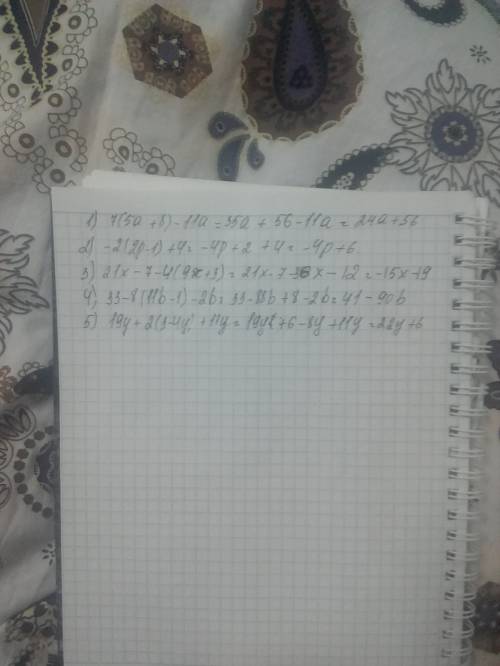 1) 7(5a + 8) - 11a = 35a + 56 - 11a = 24a + 56
2) -2(2p-1) + 4 = -4p + 2 + 4 = -4p + 6
3) 21x - 7 - 4(9x + 3) = 21x - 7 - 36x - 12 = -15x - 19
4) 33 - 8(11b - 1) - 2b = 33 - 88b + 8 - 2b = 41 - 90b
5) 19y + 2(3-4y) + 11y = 19y + 6 - 8y + 11y = 22y + 6